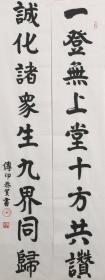 一登無上堂十方共讚
誠化諸衆生九界同歸
傳印恭賀書